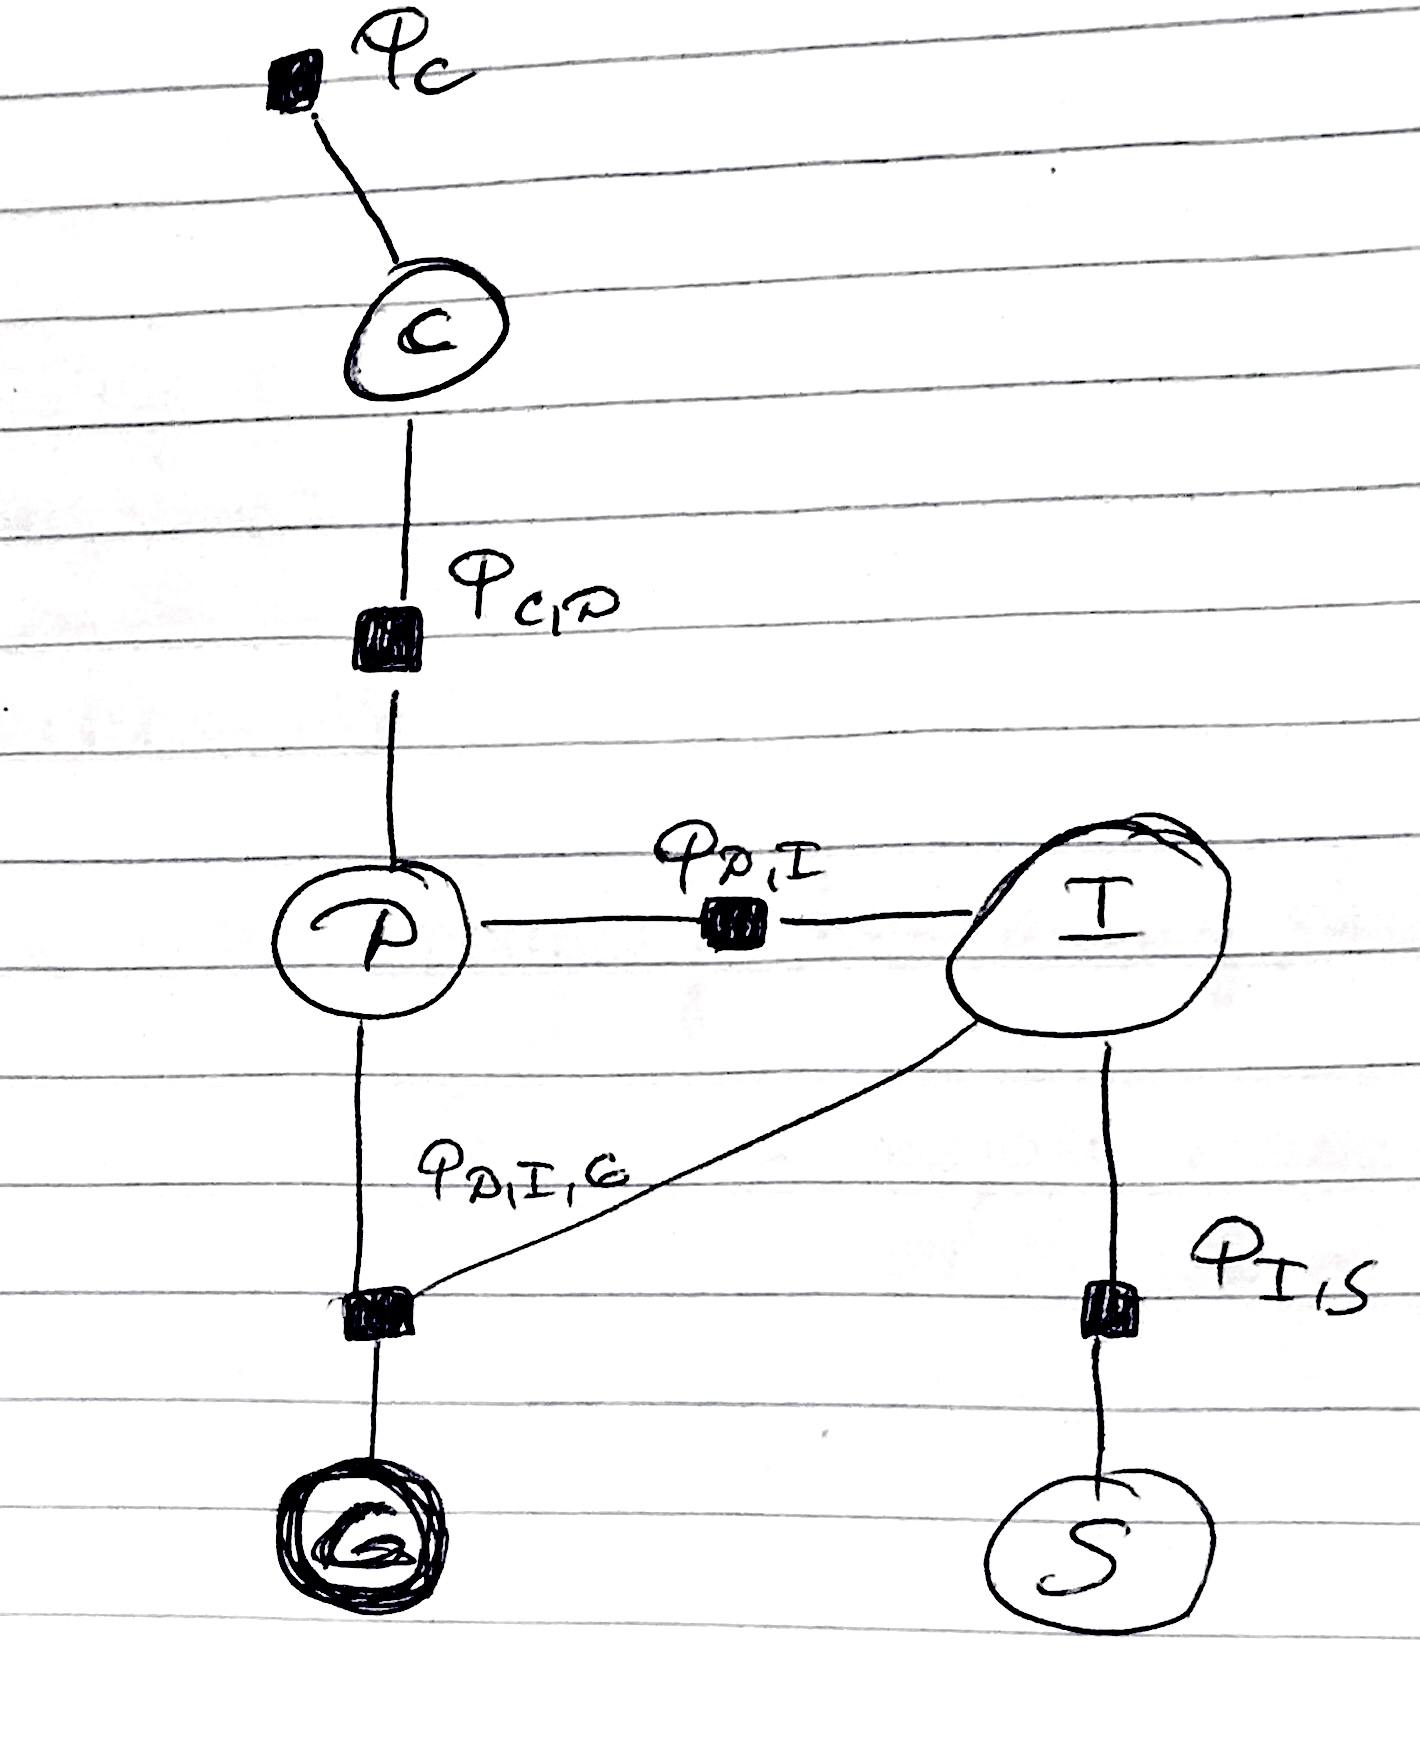 φ_C
C
φ_C,D
φ_D,I
D
I
φ_D,I,G
φ_I,S
G
S